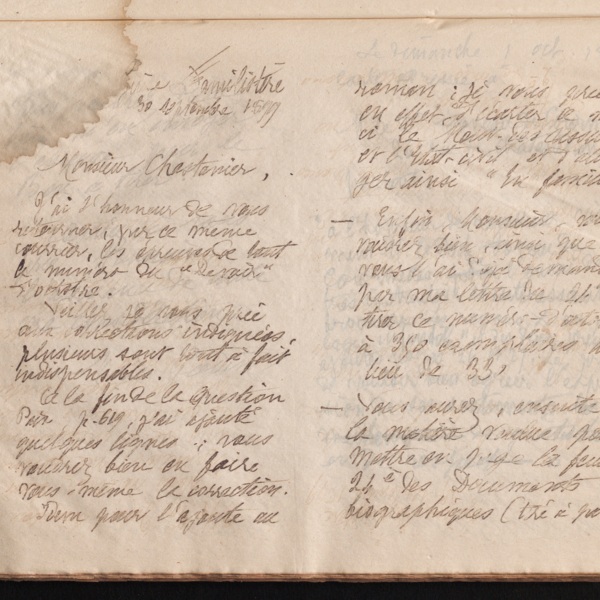 Familistère
30 septembre 1899
Monsieur Chastanier,
J'ai l'honneur de vous
retourner, par ce même
courrier, les épreuves de tout
le numéro du "Devoir"
d'octobre.
Veillez je vous prie
aux corrections indiquées,
plusieurs sont tout à fait
indispensables.
A la fin de la Question
Paix p. 619 j'ai ajouté
quelques lignes ; vous
voudrez bien en faire
vous-même la correction.
pour l'ajouté au
roman : je vous
en effet d'écarter ce
ci le
et l'Etat-civil et
ger ainsi "En
— Enfin, Monsieur,
voudrez bien ainsi que
vous l'ai déjà demandé
par ma lettre du 21
tirer ce numéro d'oct
à 350 exemplaires
lieu de 33
— Vous aurez, ensuite
la matière voulue
mettre en page la feu
24e des Documents
biographiques (tiré à